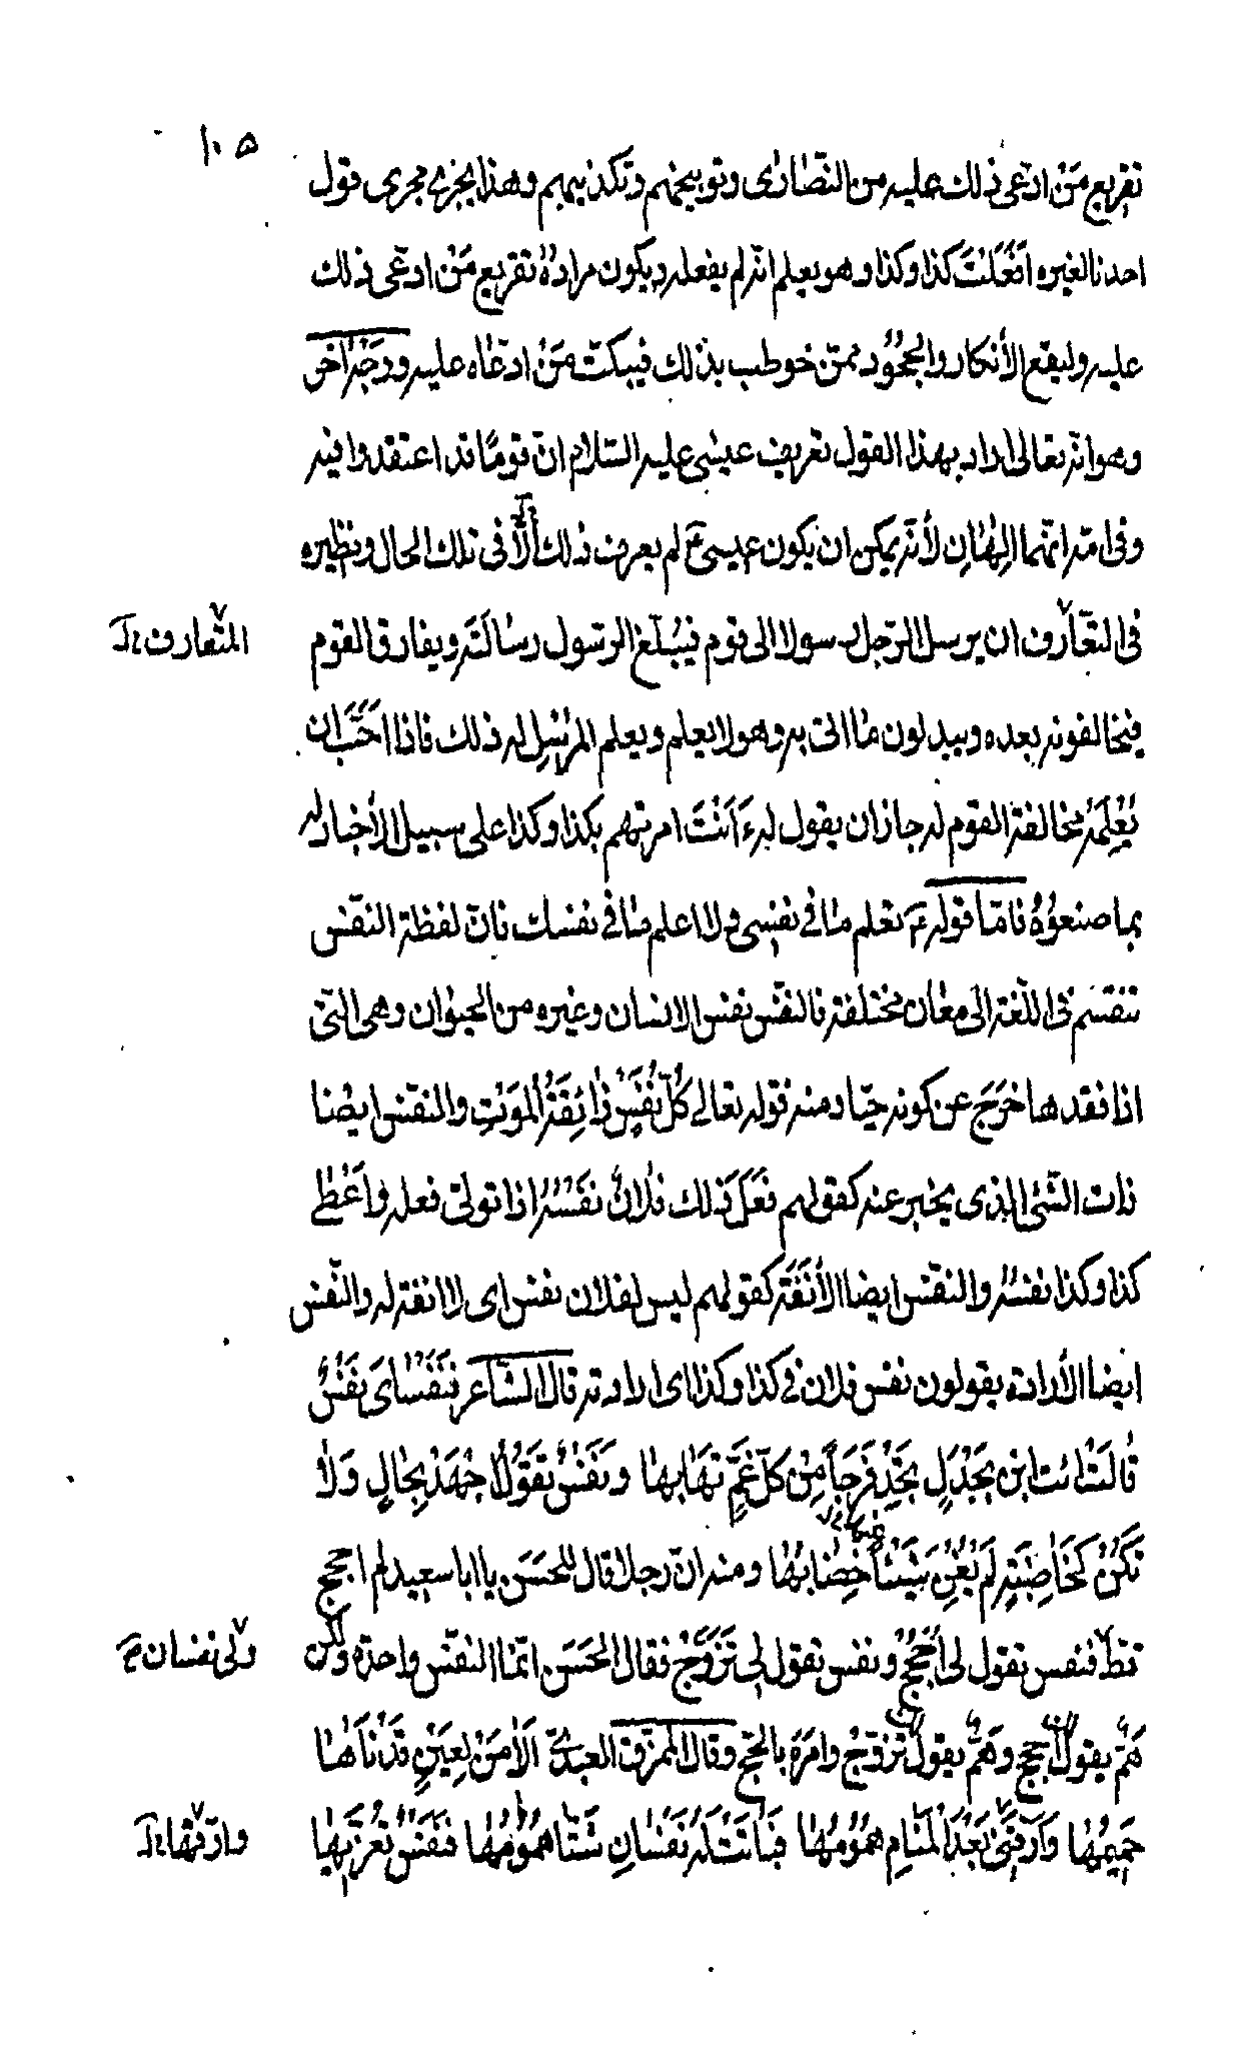 ١٠٥
تقريع مَنْ ادّعى ذلك عليه من النّصارى وتوبيخهم وتكذيبهم وهذا يجرى مجرى قول
احدنا لغيره اَفَعَلْتَ كذا وكذا وهو يعلم انّه لم يفعله ويكون مراده تقريع مَنْ ادّعى ذلك
عليه وليقع الأنكار والجحُود ممّن خوطب بذلك فيبكت مَنْ ادعاه عليه ووجه اخر
وهو انّه تعالى اراد بهذا القول تعريف عيسى عليه السّلام انّ قومًا قد اعتقدوا فيه
وفى امّه انّهما الِهٰانِ لأنّه يمكن ان يكون عيسى ع لم يعرف ذلك الّا فى تلك الحال ونظيره
فى التعّارف ان يرسل الرّجل رسولا الى قوم فيُبلّغ الرسول رسٰالَتَه ويفارق القوم
المتعارف
فيخالفونه بعده ويبدلون مٰا اتى به وهو لا يعلم ويعلم المرسِل له ذلك فاذا احَبَّ ان
يُعْلِمَهُ مخالفة القوم له جاز ان يقول له ءَاَنْتَ امرتهم بكذا وكذا على سبيل الأخبار له
بما صنعُوهُ فامّا قوله ع تعلم مٰا فى نفسى ولا اعلم مٰا فى نفسك فانّ لفظة النّفس
تنقسم فى اللّغة الى معٰان مختلفة فالنفّس نفس الانسان وغيره من الحيوٰان وهى الّتى
اذا فقدها خَرَجَ عن كونه حيّا ومنه قوله تعالى كُلّ نَفْسٍ ذٰائِقَةُ الْموَتِ والنفّس ايضا
ذات الشّئ الذى يخبر عنه كقولهم فعَلَ ذلك فلٰانٌ نَفْسُهُ اذا تولىّ فعله واَعْطٰى
كذا وكذا نفسُهُ والنفّس ايضا الأَنَفَةَ كقولهم ليس لفلان نفس اى لا انفة له والنّفس
ايضا الأرادة يقولون نفس فلان فى كذا وكذا اى ارادته قال الشّاعر فنَفْسٰاىَ نَفْسٌ
قٰالَتْ ائت ابن بَجْدَلٍ تَجِدْ فَرَجَاً مِنْ كلّ غمَّ تهٰابهٰا وَنَفْسٌ تقَوُلُ اجْهَدْ بِحٰالٍ وَلٰا
تَكُنْ كَخَاضِبَةٍ لَمْ يُغْنِ شَيْئاً خِضٰابُهٰا ومنه انّ رجلا قال للحَسَن يا ابا سعيد لم احجج
قطّ فنفس تقول لى اُحْجُجْ ونفس تقول لى تَزَوَّجْ فقال الحَسَن انّما النفّس واحدة ولكن
ولى نفسان
هَمٌّ يقول احْجج وهَمٌّ يقول تزَوّجْ وامَرَهُ بالحّج وقال الممزّق العبدىّ اَلٰا مَنْ لِعينٍ قَدْ نَآهٰا
حَمِيمُهٰا وَاَرّقَنِى بَعْدَ الْمَنٰامِ هُمُومُهٰا فبَاتَتْ لَهُ نَفْسٰانِ شَتّٰا همُوُمُهٰا فنَفْسٌ تُعزّيهٰا
وارّقها